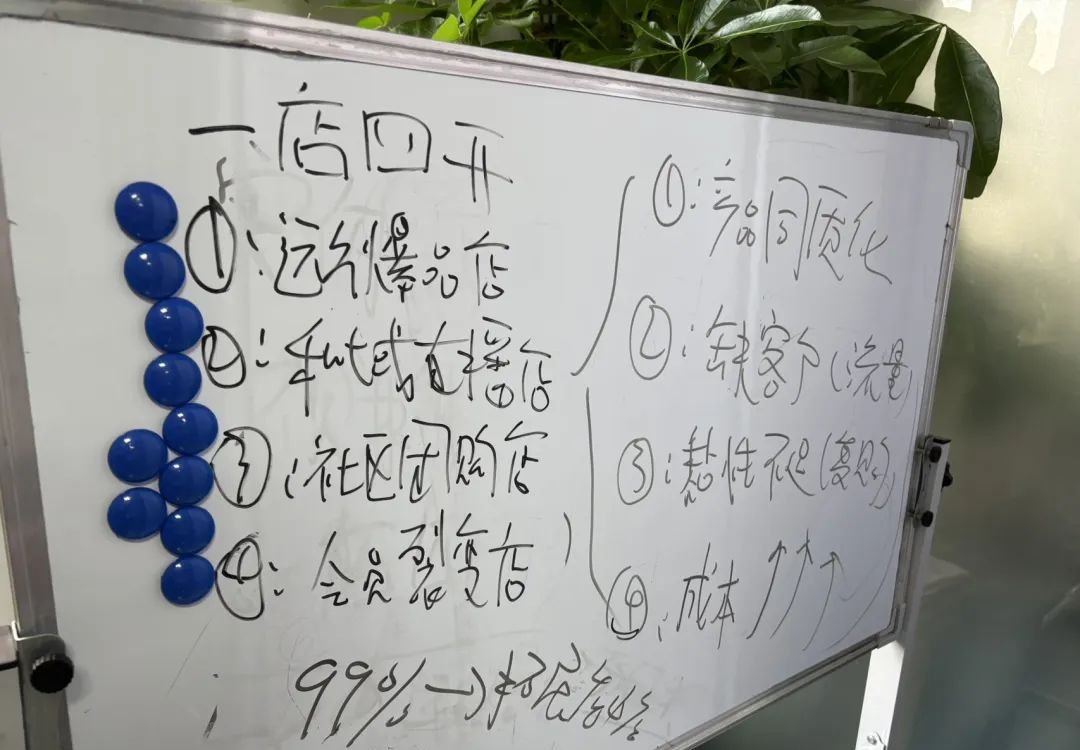 一店四开
①:运外爆品店
②:私域直播店
③:社区团购店
④:会员裂变店
99%→
①:产品同质化
②:缺客户(流量)
③:黏性不足(复购)
④:成本↑↑↑